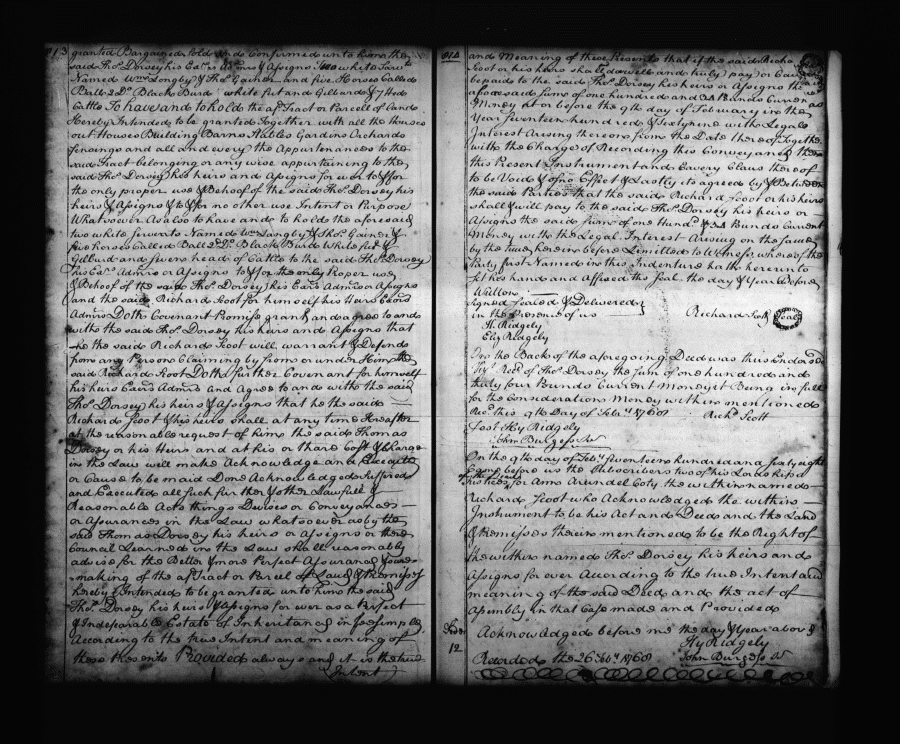 213
granted Bargained Sold and Confirmed unto him the
said Thos. Dorsey his Exrs. Admrs & Assigns two white Servts
Named Wm. Longby & Thos. Gainer and five Horses Called
Ball 2 Do. Black Burd white fut and Gilburd & 7 Hed
Cattle To have and to hold the afd. Tract or Parcell of land
Hereby Intended to be granted Together with all the Houses
out Houses Building Barns Stables Gardins Orchards
fencings and all and every the Appurtenances to the
said Tract belonging or any wise appurtaining to the
said Thos. Dorsey his heirs and Assigns for ever to & for
the only proper use & Behoof of the said Thos. Dorsey his
heirs & Assigns & to & for no other use Intent or Purpose
Whatsoever As also to have and to hold the aforesaid
two white servants Named Wm. Longby & Thos. Gainer &
five horses Called Ball 2 Do. Black Burd White fut &
Gilburd and seven head of Cattle to the said Thos. Dorsey
his Exrs. Admrs or Assigns to & for the only Proper use
& Behoof of the said Thos. Dorsey his Exrs Admrs or Assigns
and the said Richard Scoot for himself his Heirs Exrs
Admrs Doth Covenant Promiss grant and agree to and
with the said Thos. Dorsey his heirs and Assigns that
he the said Richard Scoot will warrant & Defend
from any Persons Claiming by from or under Him the
said Richard Scoot Doth further Covenant for himself
his heirs Exrs Admrs and Agree to and with the said
Thos. Dorsey his heirs & Assigns that he the said
Richard Scoot & his heirs shall at any time Hereafter
at the reasonable request of him the said Thomas
Dorsey or his Heirs and at his or thare Cost & Charge
in the Law well make Acknowledge and Execute
or Cause to be maid Done Acknowledged Suffered
and Executed all such further & other Lawfull &
Reasonable Acts things Devises or Conveyances
or Assurances in the Law whatsoever as by the
said Thomas Dorsey his heirs or Assigns or there
Council Learned in the Law shall reasonably
advise for the Better & more Perfect Assurance & sure
making of the afd. Tract or Parcel of Land & Premises
hereby Intended to be granted unto him the said
Thos. Dorsey his heirs & Assigns for ever as a Perfect
& Indefeasible Estate of Inheritance in fee simple
According to the true Intent and meaning of
these presents Provided always and it is the true
Intent
214
and Meaning of these Presents that if the said Richd.
Scoot or his heirs shall do well and truly pay or Cause to
be paid to the said Thos. Dorsey his heirs or Assigns the
aforesaid sum of one hundred and 34 Pounds Curren
Money at or before the 9th day of February in the
Year seventeen hundred & sixty nine with Legall
Interest Arising thereon from the Date thereof Together
with the Charge of Recording this Conveyance then
this Present Instrument and Every Claus thereof
to be Void & of no Effect & Lastly its agreed by & Between
the said Parties that the said Richard Scoot or his heirs
shall & will pay to the said Thos. Dorsey his heirs or
Assigns the said sum of one Hund. & 34 Pounds Current
Money with the Legal Interest Arising on the same
by the time herein before Limitted In Witness whereof the
Party first Named in this Indenture hath hereunto
set his hand and Affixed his Seal the day & Year Before
Written
Signed Sealed & Delivered
in the Presence of us Richard Scott Seal
H. Ridgely
Eliz Ridgely
On the Back of the aforegoing Deed was thus Endorsed
Recd. of Thos. Dorsey the sum of one hundred and
thirty four Pounds Current Money it Being in full
for the Consideration Money within mentioned
Recd. this 9th Day of Feby. 1768 Richd. Scott
Test Hy Ridgely
John Burgess
On the 9th day of Feby. seventeen hundred and sixty eight
Came before us the Subscribers two of his Lordships
Justices for Ann Arundel Coty. the within named
Richard Scoot who Acknowledged the within
Instrument to be his Act and Deed and the Land
& Premises therein mentioned to be the Right of
the within named Thos. Dorsey his heirs and
Assigns for ever According to the true Intent and
meaning of the said Deed and the act of
Assembly in that Case made and Provided
Acknowledged before me the day & Year above
Hy Ridgely
12
Recorded the 26 Feby. 1768 John Burgess